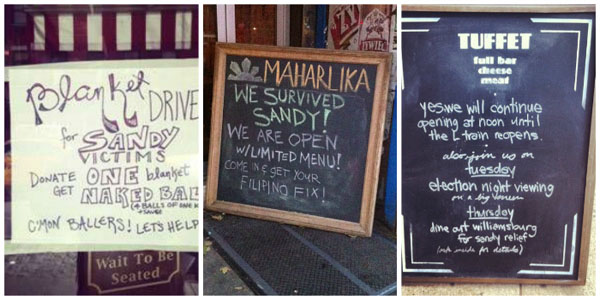 Blanket
DRIVE
for SANDY
VICTIMS
DONATE ONE blanket
GET NAKED BAL
C'MON BALLERS! LETS HELP
Wait To Be
Seated
MAHARLIKA
WE SURVIVED
SANDY!
WE ARE OPEN
W/LIMITED MENU!
COME IN & GET YOUR
FILIPINO FIX!
ZY
ZYWIEC
TUFFET
full bar
cheese
meat
yes we will continue
opening at noon until
the L train reopens.
also, join us on
tuesday
election night viewing
on a big screen
thursday
dine out williamsburg
for sandy relief
(ask inside for details)